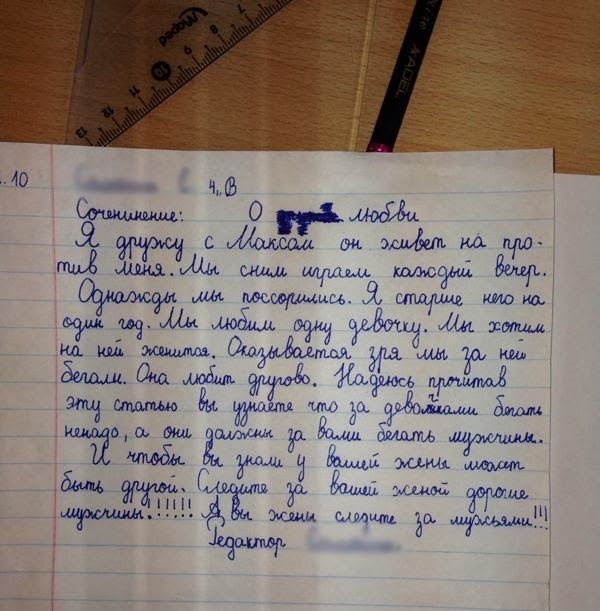 Maped
13 12 11 10 9 8 7
ADEL
10
4„В
Сочининение: О любви
Я дружу с Максом он живет на про-
тив меня. Мы сним играем каждый вечер.
Однажды мы поссорились. Я старше него на
один год. Мы любим одну девочку. Мы хотим
на ней женится. Оказывается зря мы за ней
бегали. Она любит другово. Надеюсь прочитав
эту статью вы узнаете что за девочками бегать
ненадо, а они должны за вами бегать мужчины.
И чтобы вы знали у вашей жены может
быть другой. Следите за вашей женой дорогие
мужчины!!!!!! А вы жены следите за мужьями!!!
Редактор